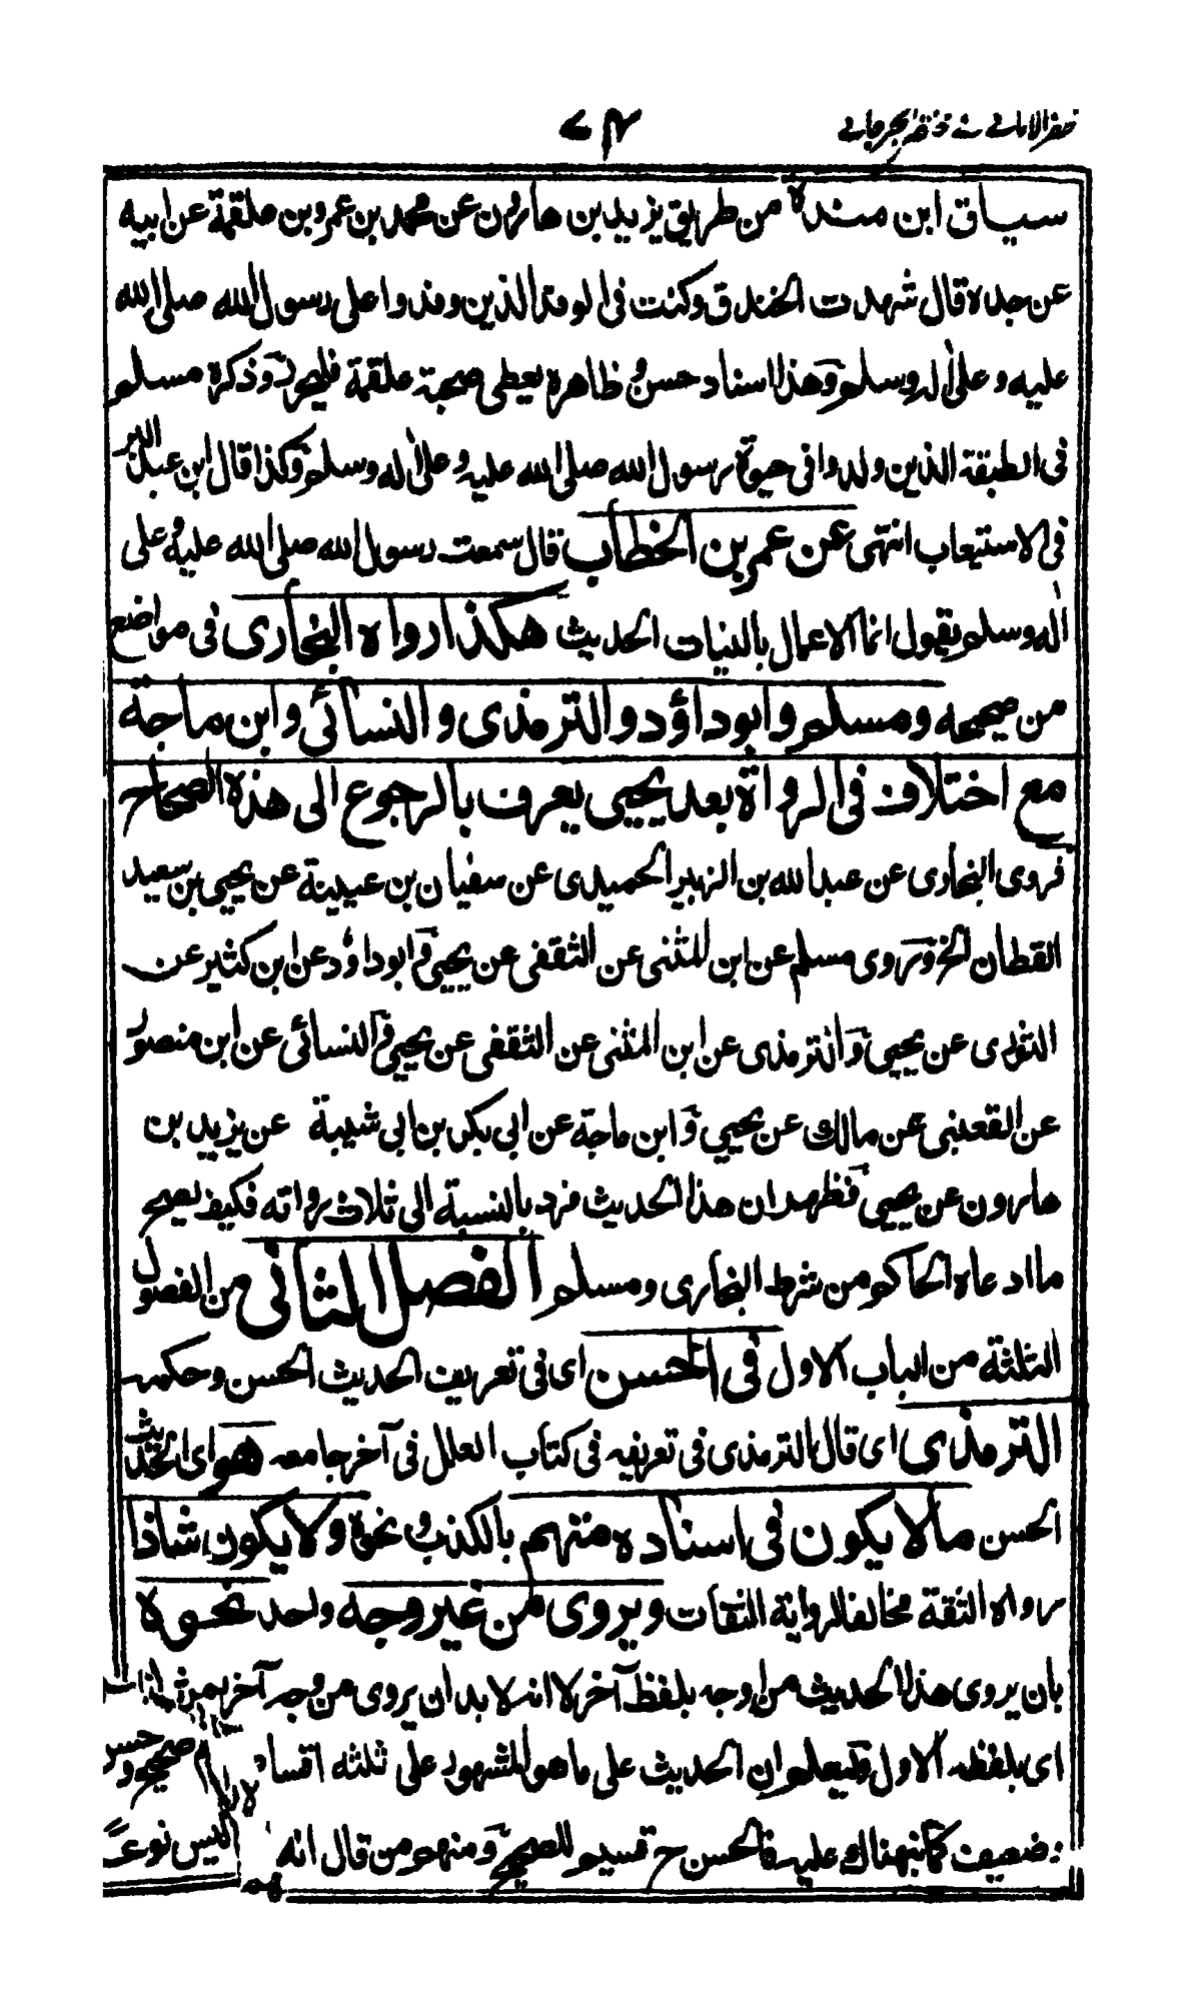 ظفر الامانی فی مختصر الجرجانی
سیاق ابن مندة من طریق یزید بن هارون عن محمد بن عمرو بن علقمة عن ابیه
عن جده قال شهدت الخندق وکنت فی الوفد الذین وفدوا علی رسول الله صلی الله
علیه وعلی اله وسلم وهذا اسناد حسن وظاهره یعطی صحبة علقمة فلیحرر وذکره مسلم
فی الطبقة الذین ولدوا فی حیوة رسول الله صلی الله علیه وعلی اله وسلم وکذا قال ابن عبد البر
فی الاستیعاب انتهی عن عمر بن الخطاب قال سمعت رسول الله صلی الله علیه وعلی
اله وسلم یقول انما الاعمال بالنیات الحدیث هکذا رواه البخاری فی مواضع
من صحیحه ومسلم وابوداؤد والترمذی والنسائی وابن ماجة
مع اختلاف فی الرواة بعد یحیی یعرف بالرجوع الی هذه الصحاح
فروی البخاری عن عبدالله بن الزبیر الحمیدی عن سفیان بن عیینة عن یحیی بن سعید
القطان الخ وروی مسلم عن ابن المثنی عن الثقفی عن یحیی وابوداؤد عن ابن کثیر عن
الثوری عن یحیی والترمذی عن ابن المثنی عن الثقفی عن یحیی والنسائی عن ابن منصور
عن القعنبی عن مالك عن یحیی وابن ماجة عن ابی بکر بن ابی شیبة عن یزید بن
هارون عن یحیی فظهر ان هذا الحدیث فرد بالنسبة الی ثلاث رواته فکیف یصح
ما ادعاه الحاکم من شرط البخاری ومسلم الفصل الثانی من الفصول
الثلثة من الباب الاول فی الحسن ای فی تعریف الحدیث الحسن وحکمه
الترمذی ای قال الترمذی فی تعریفه فی کتاب العلل فی آخر جامعه هو ای الحدیث
الحسن مالا یکون فی اسناده متهم بالکذب ونحوه ولا یکون شاذا
رواه الثقة مخالفا لروایة الثقات ویروی من غیر وجه واحد نحوه
بان یروی هذا الحدیث من وجه بلفظ آخر لا انه لا بد ان یروی من وجه آخر
ای بلفظه الاول ولیعلم ان الحدیث علی ما هو المشهور علی ثلثه اقسام صحیح وحسن
وضعیف کما نبهناك علیه فالحسن ح قسیم للصحیح ومنهم من قال انه لیس نوعا